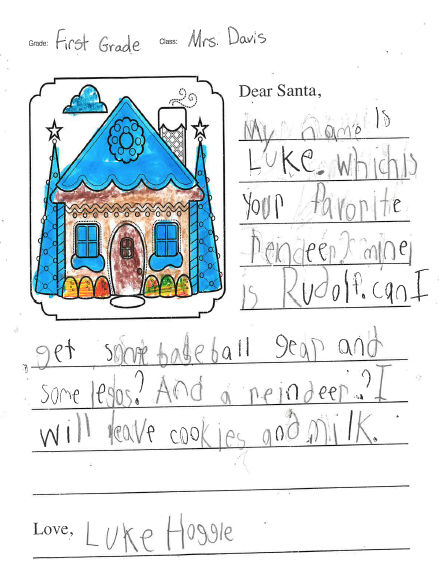 Grade: First Grade Class: Mrs. Davis
Dear Santa,
My name is
LUKE. which is
your favorite
reindeer? mine
is Rudolf. can I
get some baseball gear and
some legos? And a reindeer? I
will leave cookies and milk.
Love, LUKE Hoggle